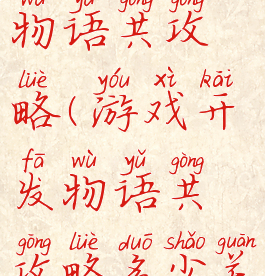 wù yǔ gòng gōng
物语共攻
lüè yóu xì kāi
略(游戏开
fā wù yǔ gòng
发物语共
gōng lüè duō shǎo guān
攻略多少关